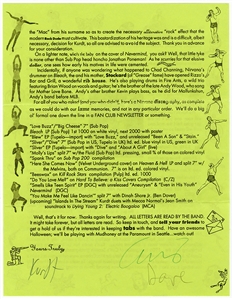 the "Mac" from his surname so as to create the necessary "rock" effect that the
modern rock fan cultivated. This bastardization of his heritage was and is a difficult, albeit necessary,
decision for Kurdt, so all are advised to avoid the subject. Thank you in advance
for your consideration.
On a lighter note, who's da lady on the cover of Nevermind, you ask? Well, that lady fate
is none other than Sub Pop head honcho Jonathan Poneman. As he scurries for that elusive
dollar, one sees how early his motives in life were cemented.
Incidentally, if anyone were wondering what happened to Chad Channing, Nirvana's
drummer on Bleach, the and his mother, Stockard (of "Grease" fame) have opened Rizzo's
Bar and Grill, a wonderful rib house. He's also playing drums in Fire Ants, a wild trio
featuring Brian Wood on vocals and guitar; he's the brother of the late Andy Wood, who sang
for Mother Love Bone. Andy's other brother Kevin plays bass, as he did for Malfunkshun,
Andy's band before MLB.
For all of you who asked (and you who didn't), here's a Nirvana discography, as complete
as we could do with our listed memories, and not in any particular order. We'll do a big
ol' formal one down the line in a FAN CLUB NEWSLETTER or something:
"Love Buzz"/"Big Cheese" 7" (Sub Pop)
Bleach LP (Sub Pop) 1st 1000 on white vinyl, next 2000 with poster
"Blew" EP (Tupelo—import) with "Love Buzz," and unreleased "Been A Son" & "Stain"
"Sliver"/"Dive" 7" (Sub Pop in US, Tupelo in UK) 1st ed. blue vinyl in US, green in UK
"Sliver" EP (Tupelo—import) with "Dive" and "About A Girl" live
"Molly's Lips" split 7" w/the Fluid (Sub Pop) 1st pressing, small % of those on colored vinyl
"Spank Thru" on Sub Pop 200 compilation
"Here She Comes Now" (Velvet Underground cover) on Heaven & Hell LP and split 7" w/
the Melvins, both on Communion. 7" is on ltd. ed. colored vinyl
"Beeswax" on Kill Rock Stars compilation (Pulp) ltd. ed. 1000
"Do You Love Me?" on Hard To Believe: a Kiss Covers Compilation (C/Z)
"Smells Like Teen Spirit" EP (DGC) with unreleased "Aneurysm" & "Even In His Youth"
Nevermind (DGC)
(upcoming) "Islands In The Stream" Kurdt duets with Mecca Normal's Jean Smith on
soundtrack to Urging Young 2: Electric Boogaloo (MCA)
Well, that's it for now. Thanks again for writing. ALL LETTERS ARE READ BY THE BAND.
It might take forever, but all letters are read. So keep in touch, and tell your friends to
get a hold of us if they're interested in keeping tabs on the band. Have an awesome
Halloween, we'll be playing with Mudhoney at the Paramount in Seattle...watch out!
Yours Truly,
Kurdt